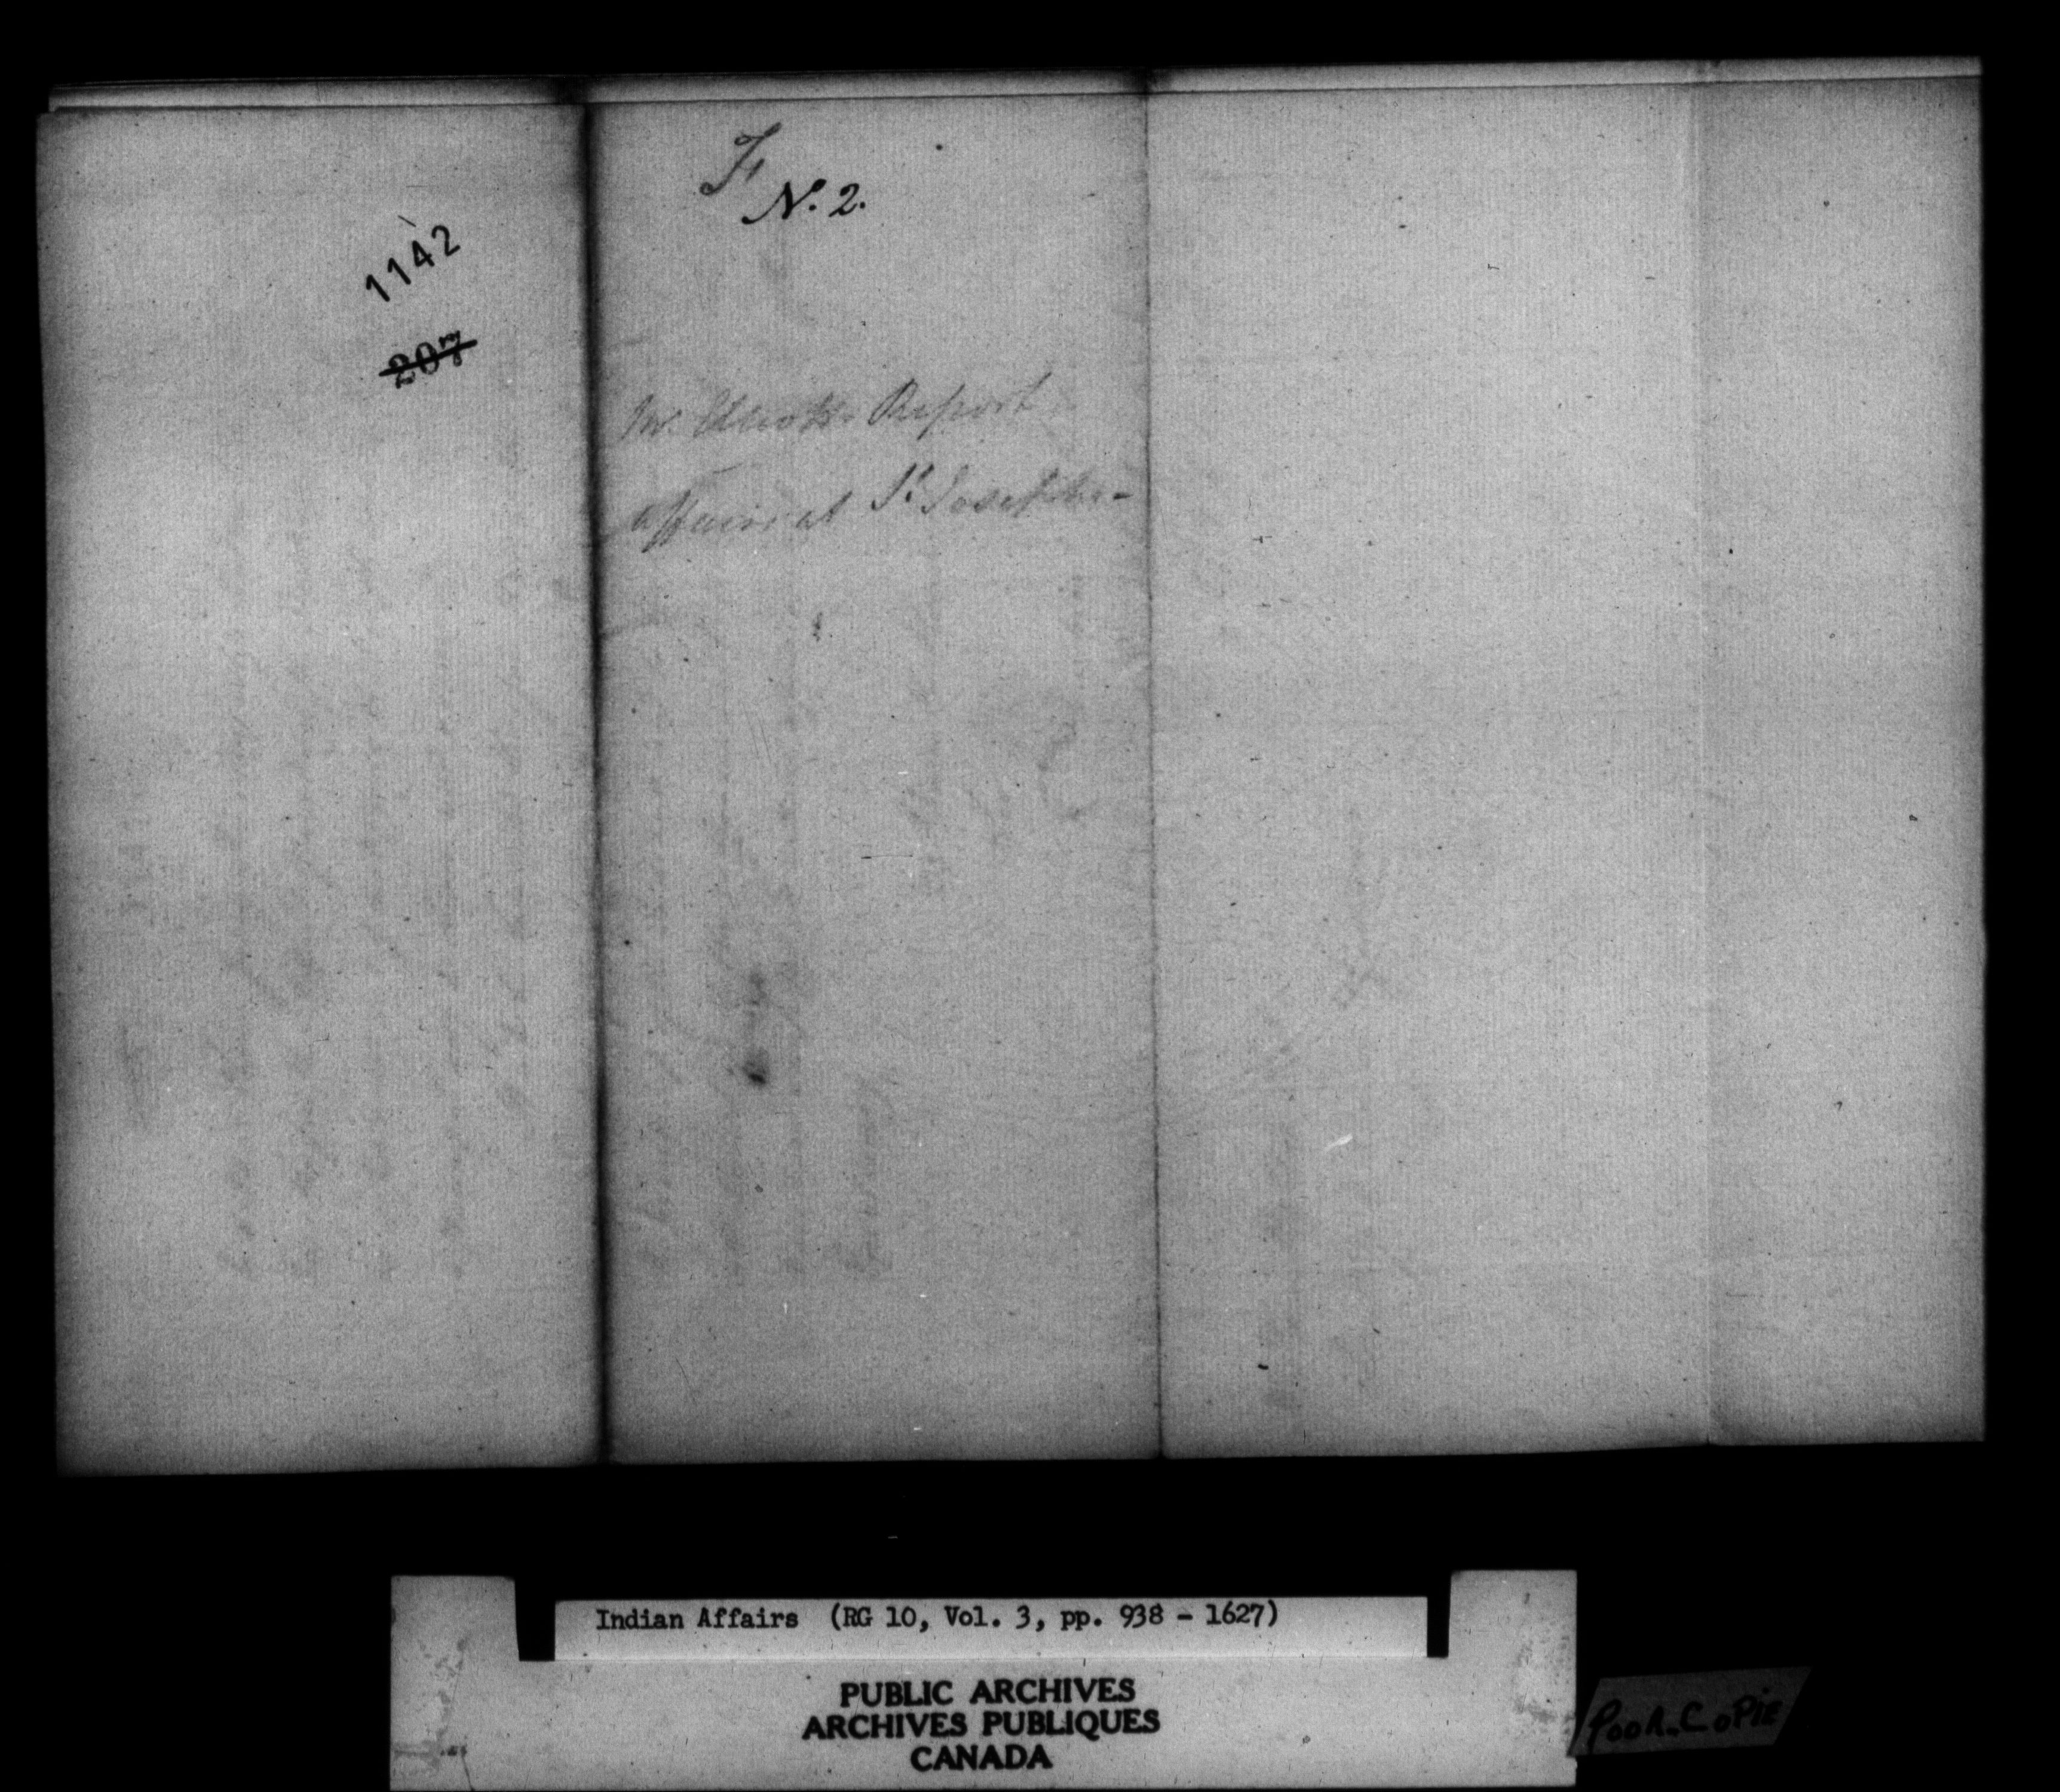 1142
207
F
N.o 2.
Mr. Elliott's Report
Affairs at St. Josephs -
Indian Affairs (RG 10, Vol. 3, pp. 938 - 1627)
PUBLIC ARCHIVES
ARCHIVES PUBLIQUES
CANADA
POOR COPIE